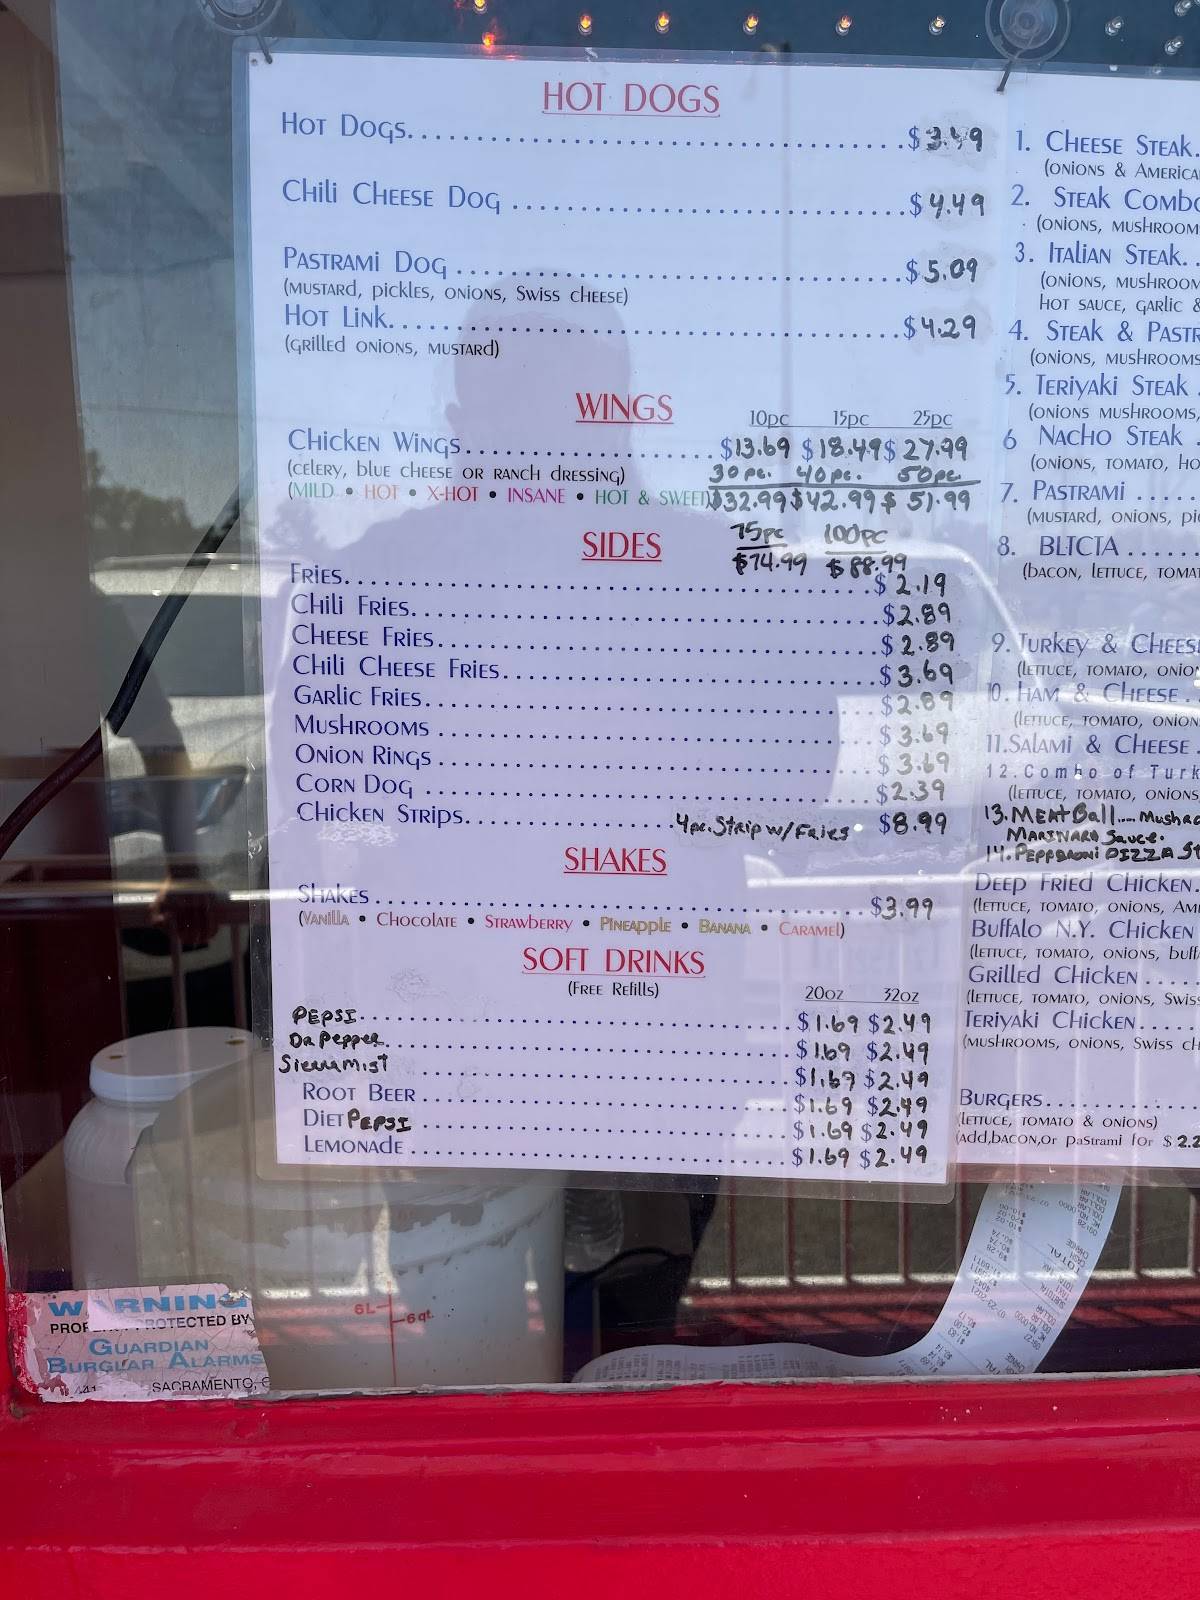 HOT DOGS
Hot Dogs $3.49
Chili Cheese Dog $4.49
Pastrami Dog $5.09
(mustard, pickles, onions, Swiss cheese)
Hot Link $4.29
(grilled onions, mustard)
WINGS 10pc 15pc 25pc
Chicken Wings $13.69 $18.49 $27.99
(celery, blue cheese or ranch dressing) 30pc. 40pc. 50pc.
(MILD • HOT • X-HOT • INSANE • HOT & SWEET) $32.99 $42.99 $51.99
75pc 100pc
SIDES $74.99 $88.99
Fries $2.19
Chili Fries $2.89
Cheese Fries $2.89
Chili Cheese Fries $3.69
Garlic Fries $2.89
Mushrooms $3.69
Onion Rings $3.69
Corn Dog $2.39
Chicken Strips 4pc. Strip w/ Fries $8.99
SHAKES
Shakes $3.99
(Vanilla • Chocolate • Strawberry • Pineapple • Banana • Caramel)
SOFT DRINKS
(Free Refills) 20oz 32oz
PEPSI $1.69 $2.49
Dr Pepper $1.69 $2.49
Sierra Mist $1.69 $2.49
Root Beer $1.69 $2.49
Diet PEPSI $1.69 $2.49
Lemonade $1.69 $2.49
1. Cheese Steak
(onions &
2. Steak
(onions,
3. Italian Steak
(onions,
hot sauce, garlic &
4. Steak &
(onions, mushrooms
5. Teriyaki Steak
(onions mushrooms,
6 Nacho Steak
(onions, tomato,
7. Pastrami
(mustard, onions,
8. BLTCTA
(bacon, lettuce,
9. Turkey &
(lettuce, tomato,
10. Ham & Cheese
(lettuce, tomato,
11. Salami & Cheese
12. Combo of
(lettuce, tomato, onions,
13. MEAT Ball
MARINARA Sauce.
14. PEPPERONI PIZZA
Deep Fried Chicken
(lettuce, tomato, onions,
Buffalo N.Y. Chicken
(lettuce, tomato, onions,
Grilled Chicken
(lettuce, tomato, onions,
Teriyaki Chicken
(mushrooms, onions, Swiss
Burgers
(lettuce, tomato & onions)
(Add, bacon, or pastrami for $
WARNING
PROTECTED BY
GUARDIAN
BURGLAR ALARMS
SACRAMENTO,
6L
6 qt.